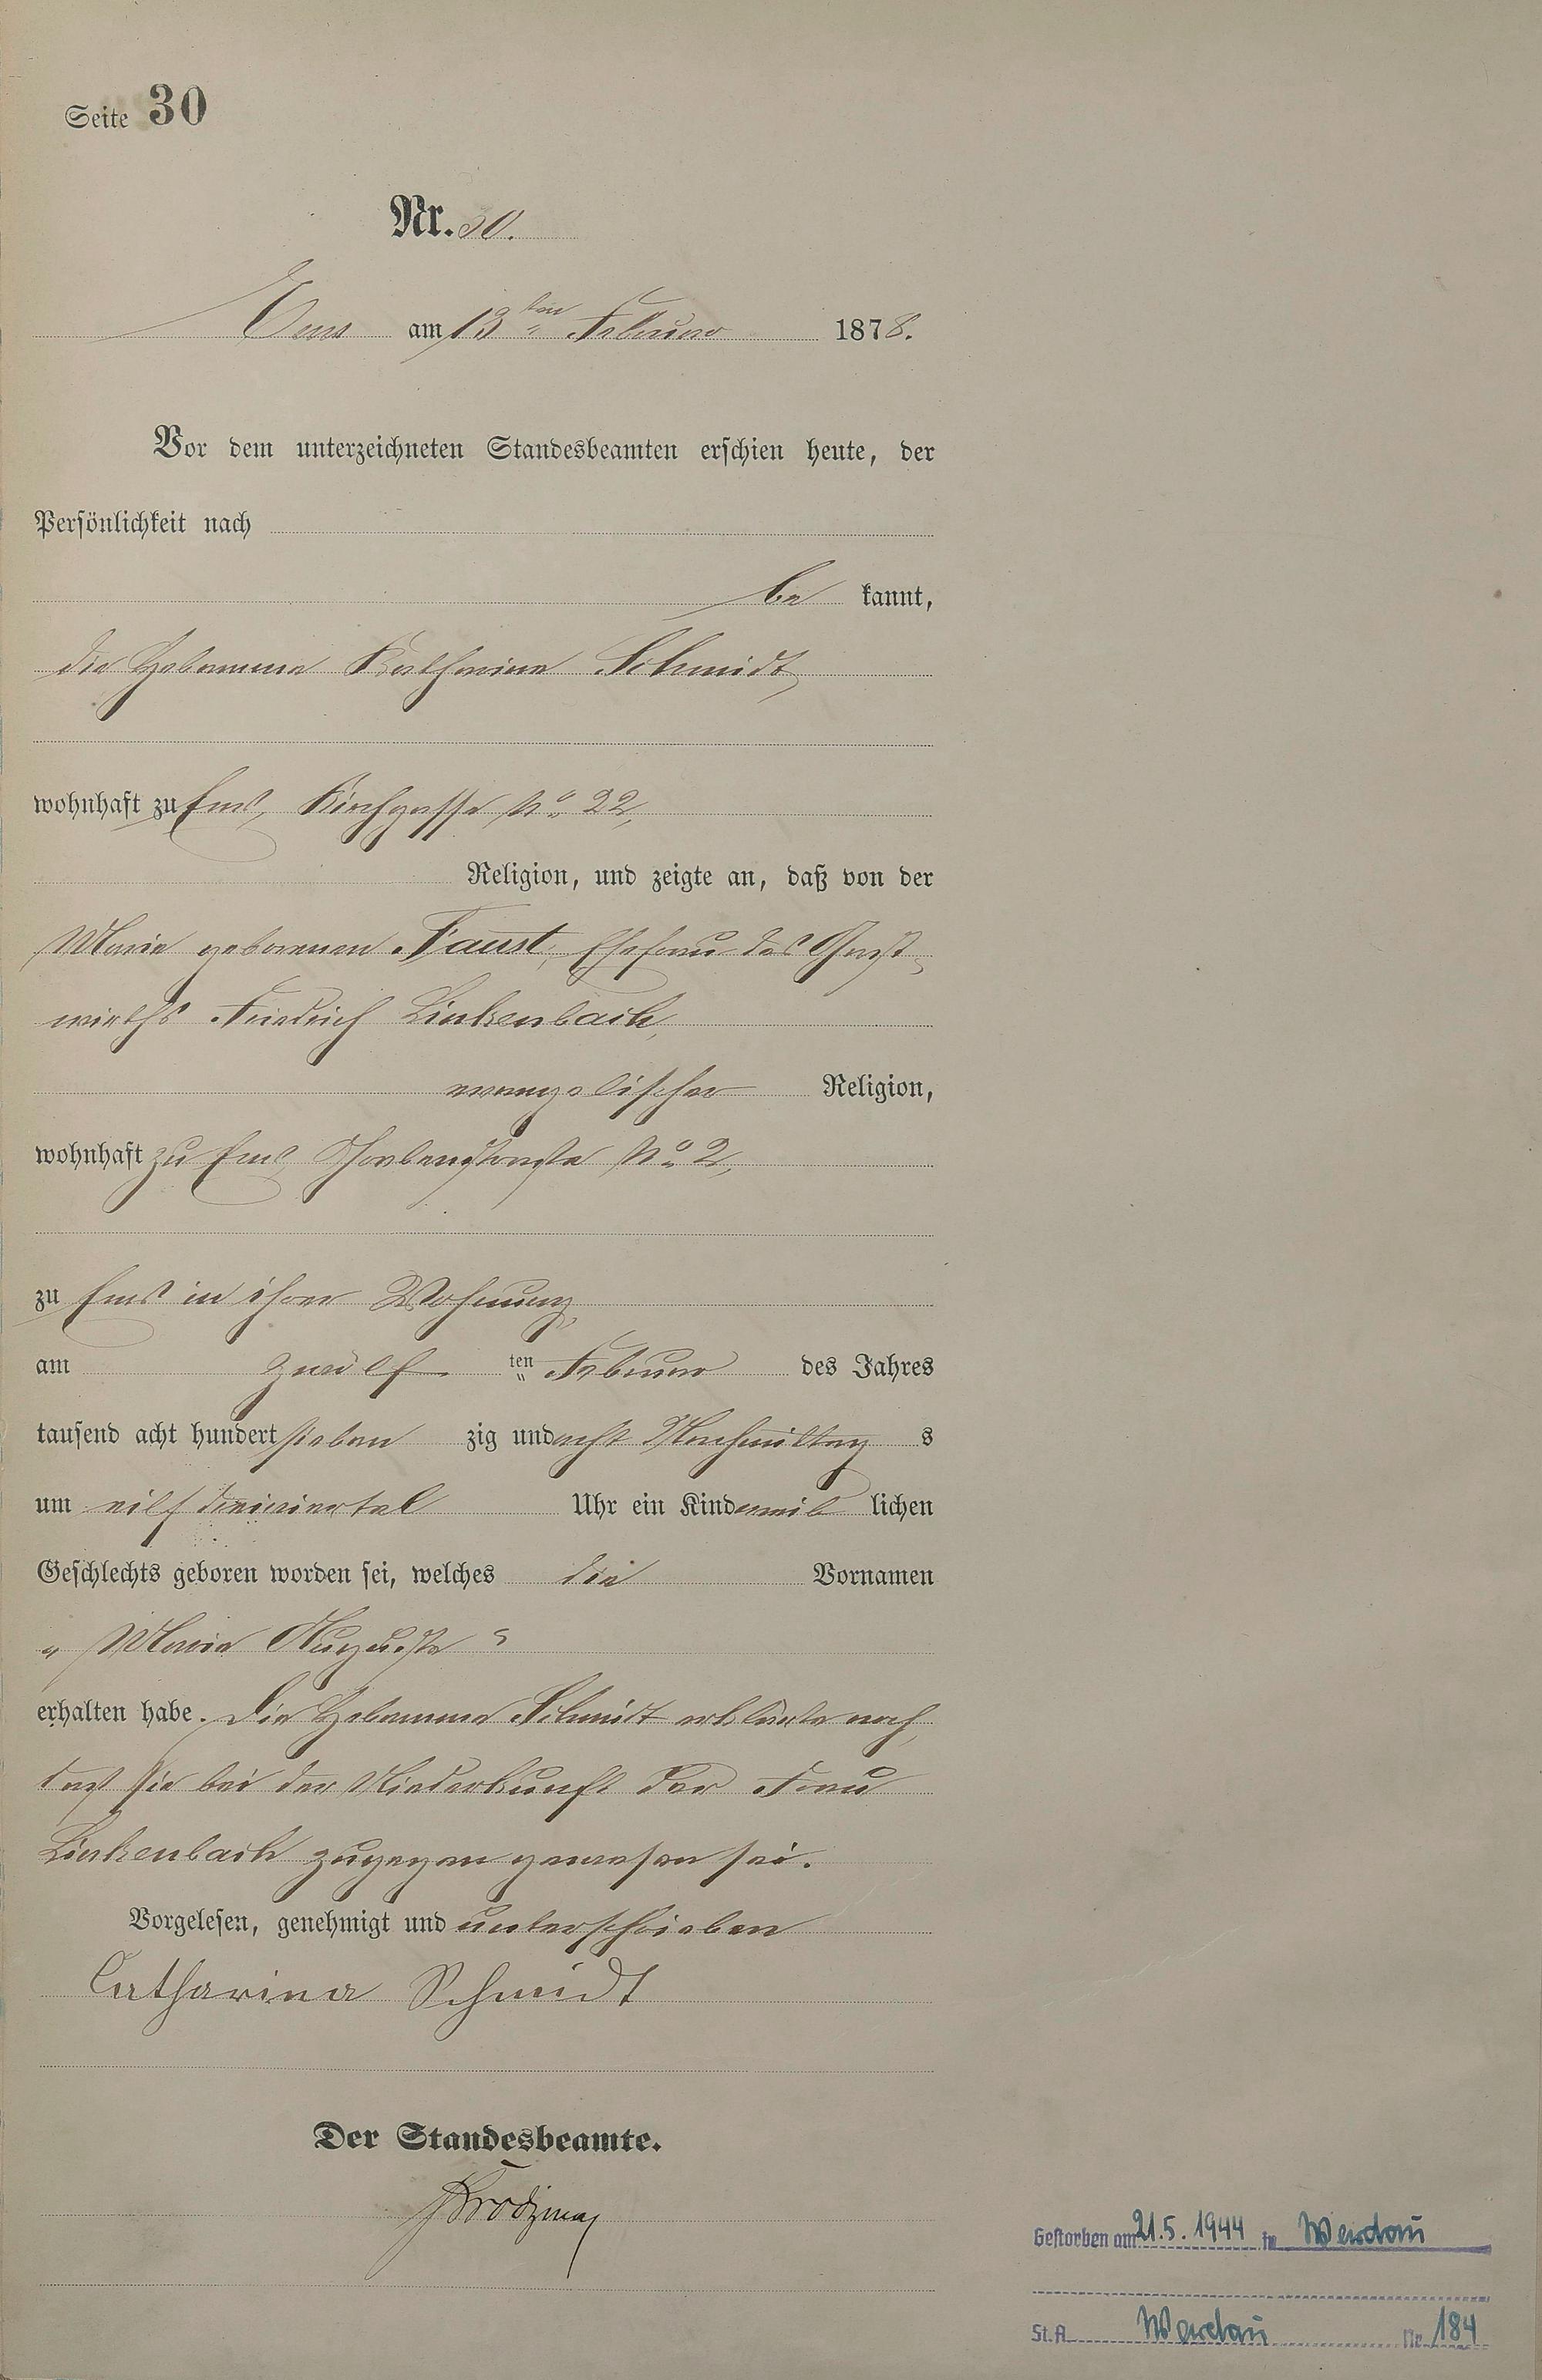 Seite 30
Nr. 30.
Ems am 13ten Februar 1878.
Vor dem unterzeichneten Standesbeamten erschien heute, der
Persönlichkeit nach
be kannt,
die Hebamme Katharina Schmidt,
wohnhaft zu Ems, Kirchgasse No 22,
Religion, und zeigte an, daß von der
Marie geborenen Faust, Ehefrau des Gast-
wirths Friedrich Linkenbach,
evangelischer Religion,
wohnhaft zu Ems, No 2,
zu Ems in ihrer Wohnung,
am zwölf ten Februar des Jahres
tausend acht hundert sieben zig und acht Nachmittag s
um eilf dreiviertel Uhr ein Kind weib lichen
Geschlechts geboren worden sei, welches die Vornamen
„ Marie Auguste "
erhalten habe. Die Hebamme Schmidt erklärte noch,
daß sie bei der Niederkunft der Frau
Linkenbach zugegen gewesen sei.
Vorgelesen, genehmigt und unterschrieben
Catharina Schmidt
Der Standesbeamte.
Gestorben am 21.5.1944 in Werdau
St.A. Werdau Nr. 184